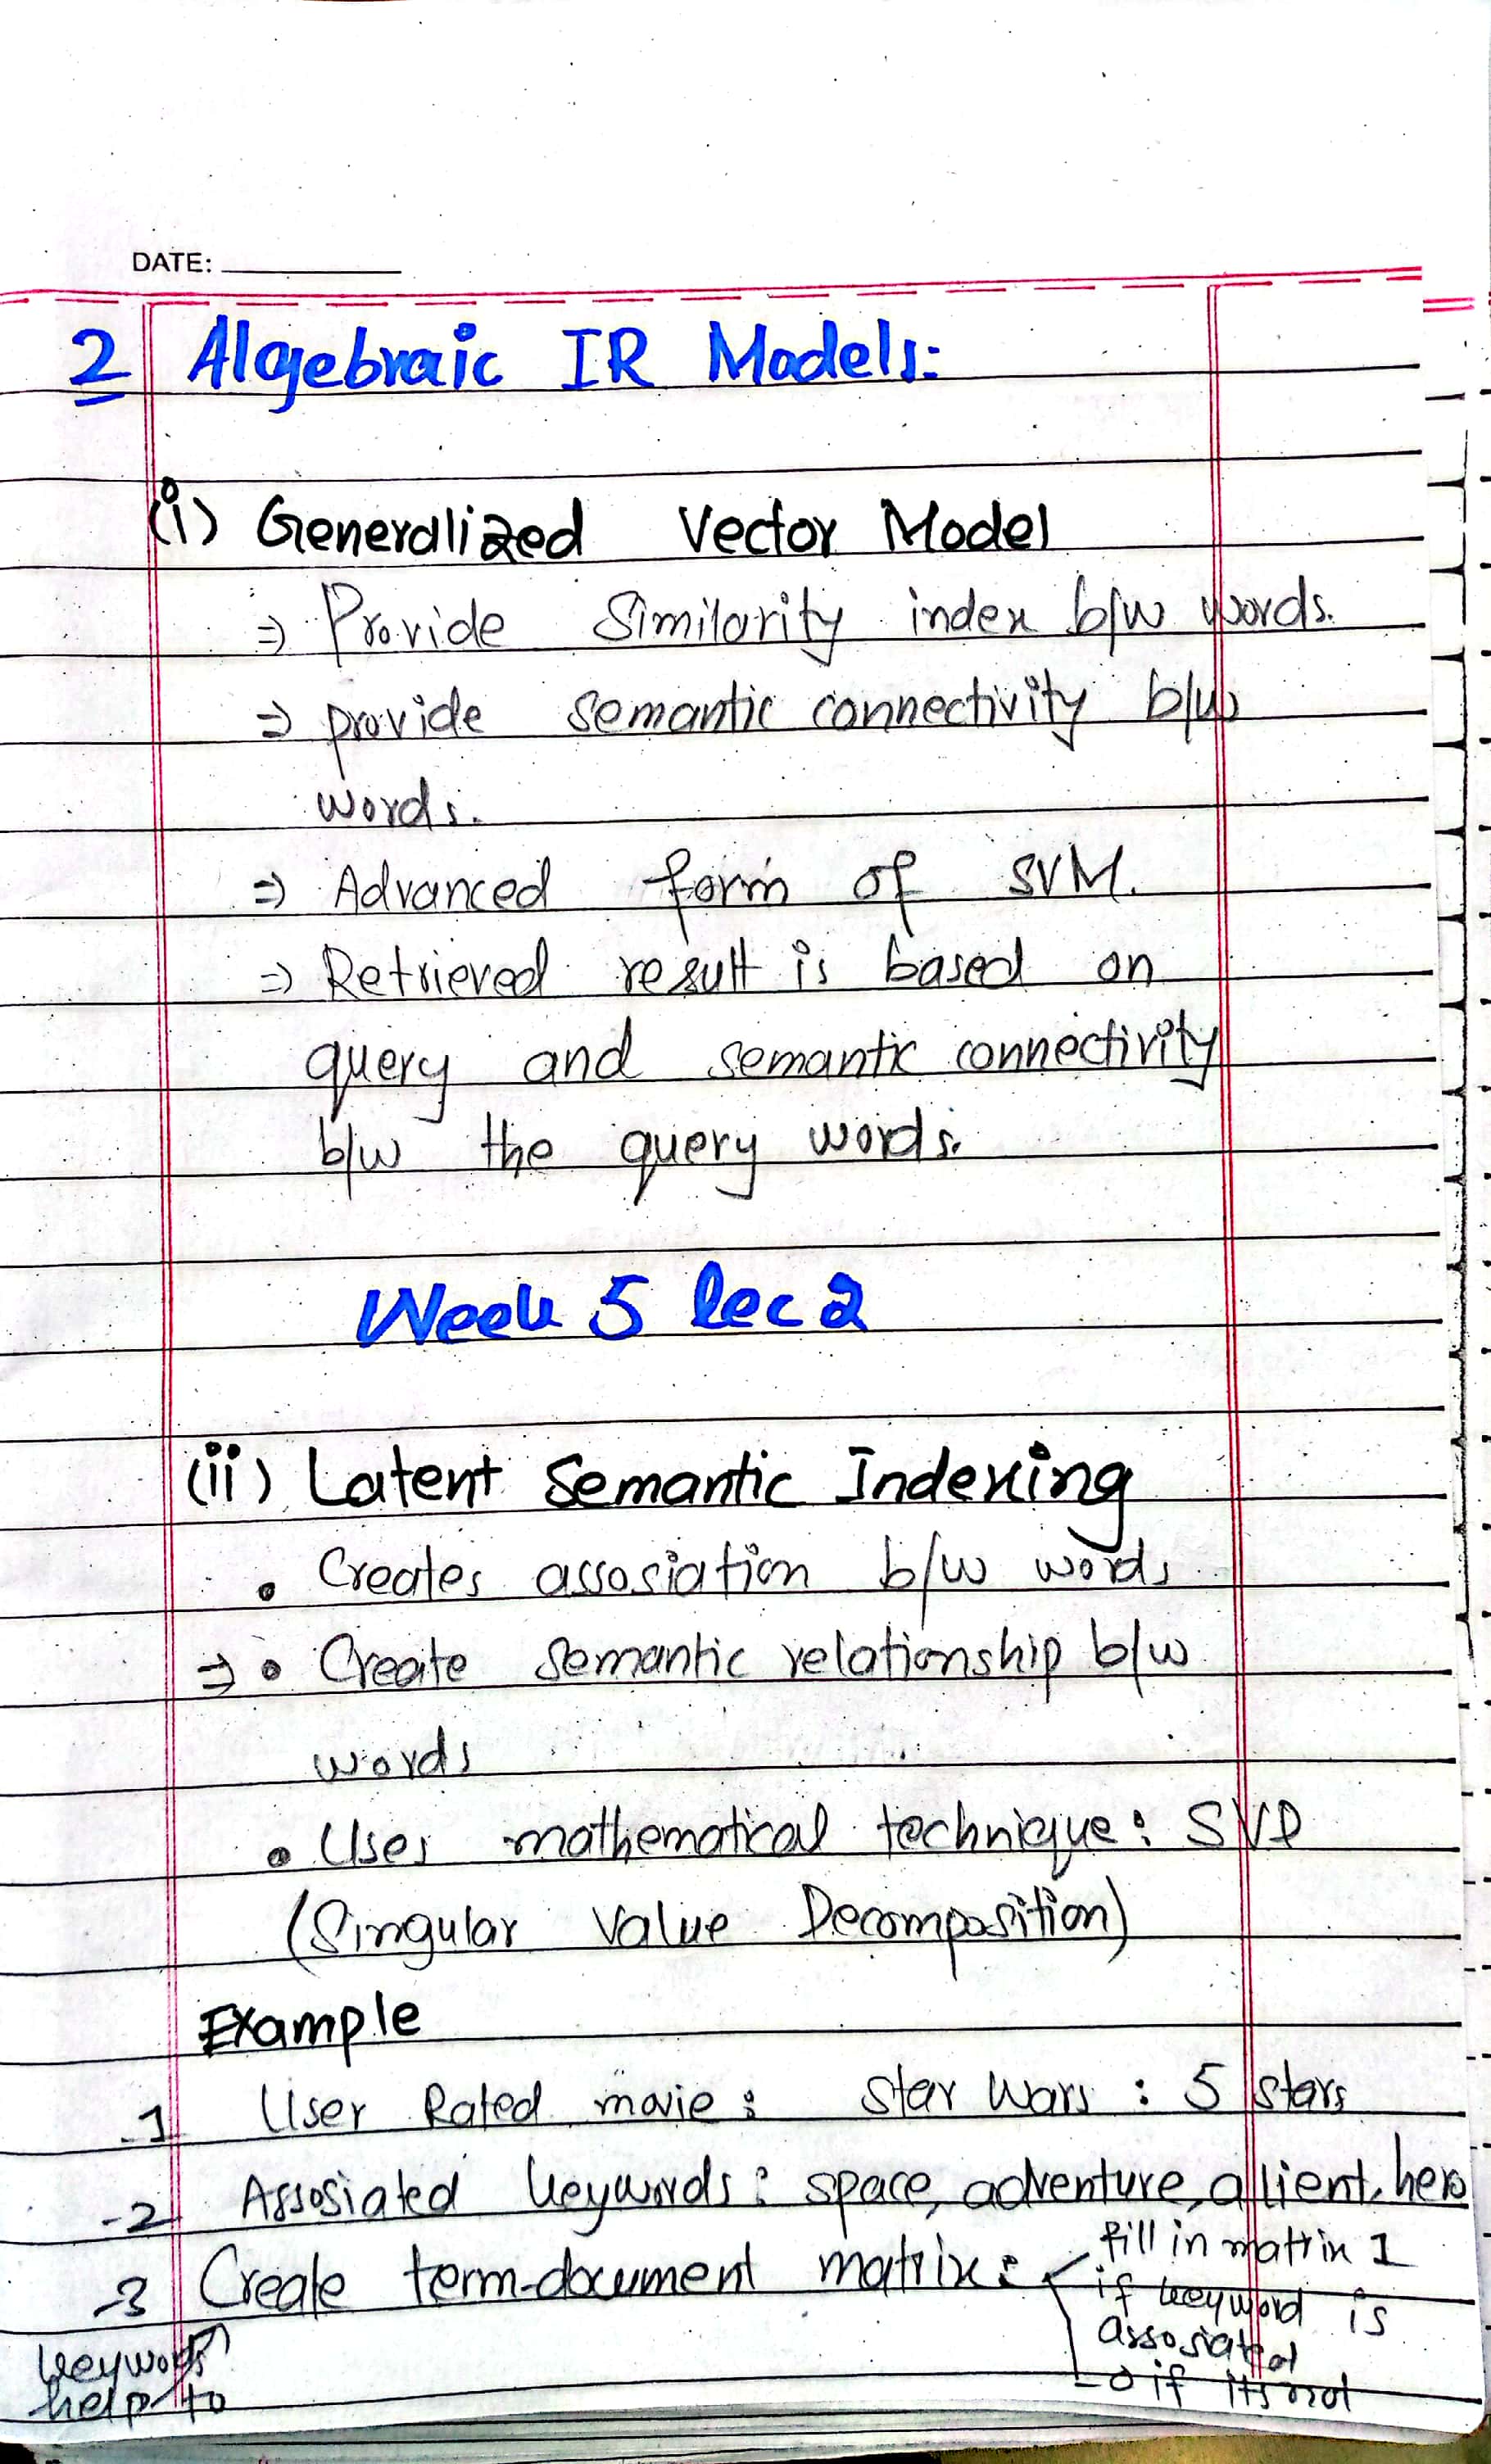 DATE:
2 Algebraic IR Models:
(i) Generalized Vector Model
⇒ Provide Similarity index b/w words.
⇒ provide semantic connectivity b/w
words.
⇒ Advanced form of SVM.
⇒ Retrieved result is based on
query and semantic connectivity
b/w the query words.
Week 5 lec 2
(ii) Latent Semantic Indexing
• Creates assosiation b/w words
⇒ • Create semantic relationship b/w
words
• Uses mathematical technique: SVD
(Singular Value Decomposition)
Example
1 User Rated movie: Star Wars : 5 stars
2 Assosiated keywords: space, adventure, allient, hero
3 Create term-document matrix:
fill in matrix 1
if keyword is
assosiated
0 if its not
keywords
help to